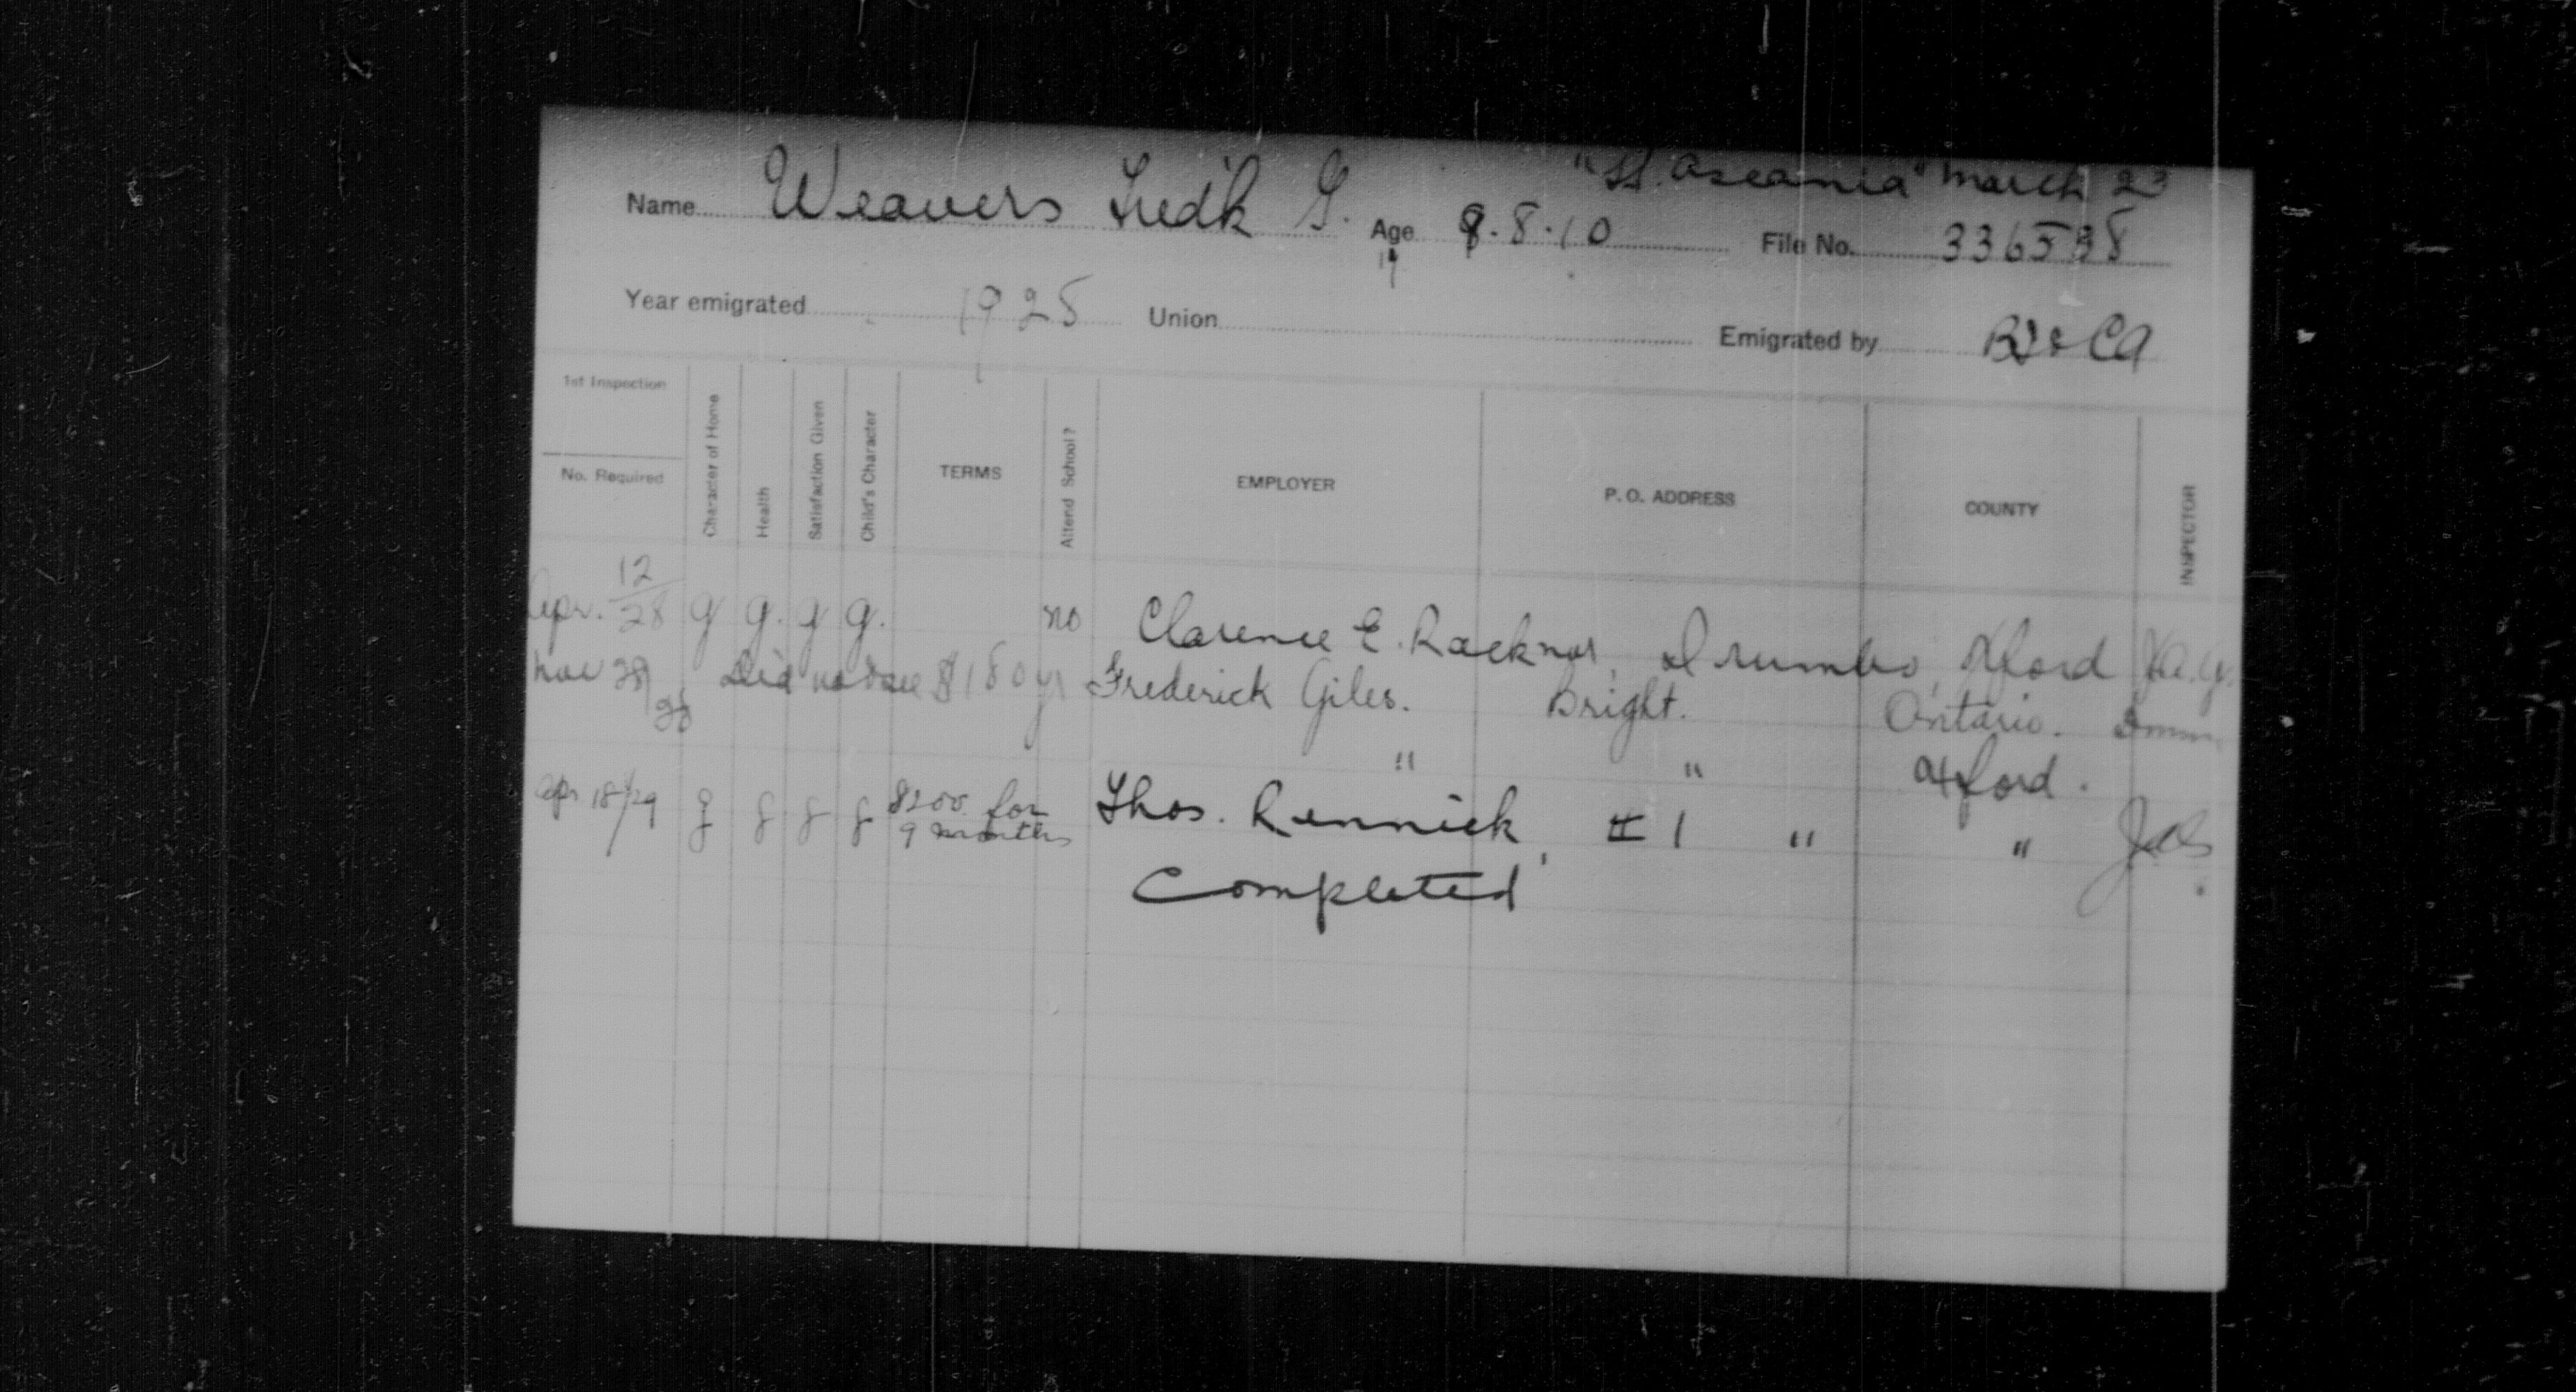 "SS. Ascania" March 23
Name Weavers Fredk G. Age 9.8.10 File No. 336598
17
Year emigrated 1928 Union Emigrated by
1st Inspection
No. Required
Character of Home
Health
Satisfaction Given
Child's Character
TERMS
Attend School?
EMPLOYER
P. O. ADDRESS
COUNTY
INSPECTOR
Apr. 12/28 g g. g g. no Clarence E. Drumbo, Oxford
Nov 28 Did not see $180 yr Frederick Giles. Bright. Ontario.
28
" " Oxford.
Apr 18/29 g g g g $200 for 9 months Thos. Rennick, #1 " "
Completed